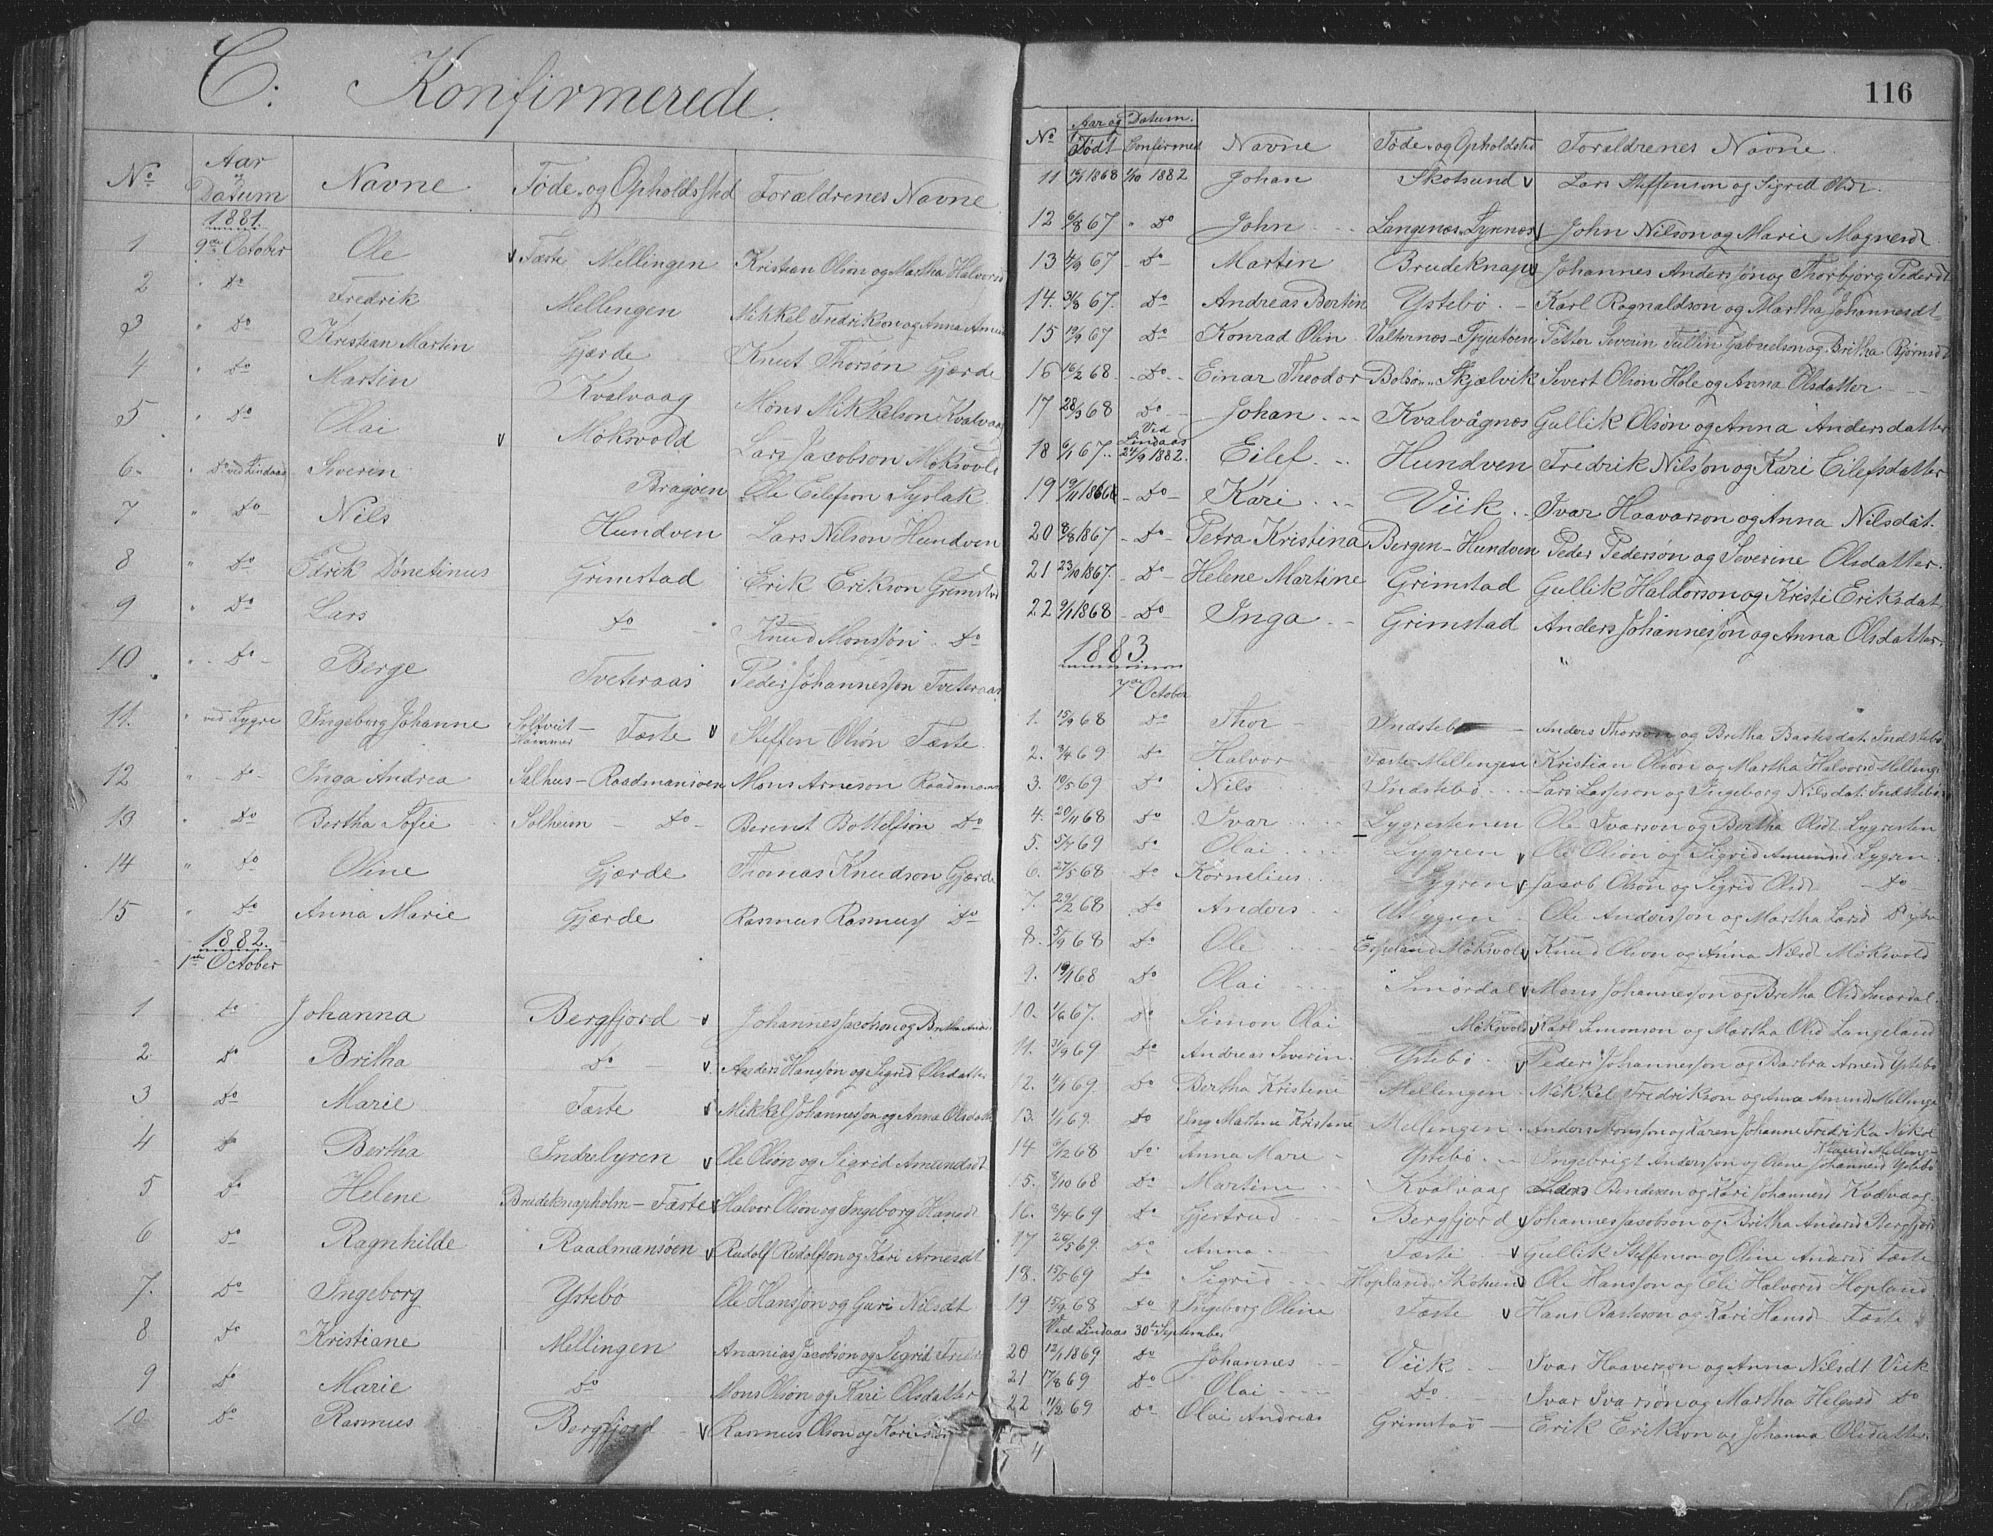 C. Konfirmerede.
No. Aar og Datum Navne Føde- og Opholdsted Forældrenes Navne
1881.
1 9de October Ole Fæste Mellingen Kristian Olson og Martha Halvorsd
2 " Do Fredrik Mellingen Mikkel Fredrikson og Anna Amun
3 " Do Kristian Martin Gjærde Knut Thorson Gjærde
4 " Do Martin Kvalvaag Mons Mikkelson Kvalvaag
5 " Do Olai Møksvold Lars Jacobson Møksvold
6 " Do ved Lindaas Severin Bragøen Ole Eilefson Syslak
7 " Do Nils Hundven Lars Nilson Hundven
8 " Do Edrik Dønetinus Grimstad Erik Erikson Grimstad
9 " Do Lars Do Knud Monsson Do
10 " Do Berge Tveteraas Peder Johannesson Tveteraas
11. " ved Lygre Ingeborg Johanne Soltveit - Hammer Fæste Steffen Olson Fæste
12 " Do Inga Andrea Salhus - Raadmansøen Mons Arneson Raadmans
13 " Do Bertha Sofie Solheim - Do - Berent Bottolfson Do
14 " Do Oline Gjærde Thomas Knudson Gjærde
15 " Do Anna Marie Gjærde Rasmus Rasmuss Do
1882.
1ste October
1 Do Johanna Bergfjord Johannes Jacobson og Britha Ands
2 Do Britha Do Anders Hansson og Sigrid Olsdatter
3 Do Marie Fæste Mikkel Johannesson og Anna Olsdatt
4 Do Bertha Indrelyren Ole Olson og Sigrid Amundsdt
5 Do Helene Brudeknapholm - Fæste Halvor Olson og Ingeborg Hansdt
6 Do Ragnhilde Raadmansøen Rudolf Rudolfson og Kari Arnesdt
7. Do Ingeborg Ystebø Ole Hansson og Guri Nilsdt
8 Do Kristiane Mellingen Ananias Jacobson og Sigrid Fredr
9 Do Marie Do Mons Olson og Kari Olsdatter
10 Do Rasmus Bergfjord Rasmus Olson og Kari
116
No Aar og Datum. Født Confirmed Navne Føde- og Opholdsted Forældrenes Navne.
11 1868 1/10 1882 Johan Skotsund Lars Steffenson og Sigrid Olsdt.
12 6/8 67 " Do John Langenæs Lyrnæs John Nilson og Marie Magnesdt
13 4/9 67 Do Martin Brudeknap Johannes Andersson og Thorbjørg Pedersdt
14. 31/8 67. Do Andreas Bertin Ystebø Karl Ragnaldson og Martha Johannesdt
15 19/9 67 Do Konrad Olin Valternæs - Spjutøen Petter Severin Tullin Gabrielson og Britha Bjørnsdt
16 16/2 68 Do Einar Theodor Bolsø - Skjælvik Sivert Olson Hole og Anna Olsdatter
17 28/3 68 Do Johan Kvalvågnes Gullik Olson og Anna Andersdatter
Ved Lindaas
18 6/1 67. 24/9 1882. Eilef Hundven Fredrik Nilsson og Kari Eilefsdatter
19 19/11 1866 Do Kari Viik Ivar Haavarson og Anna Nilsdat.
20 8/8 1867 Do Petra Kristina Bergen - Hundven Peder Pederson og Severine Olsdatter.
21 23/10 1867. Do Helene Martine Grimstad Gullik Haldorson og Kristi Eriksdat.
22 9/1 1868 Do Inga Grimstad Anders Johannesson og Anna Olsdatter.
1883
7de October
1. 15/9 68 Do Thor Indstebø Anders Thorson og Britha Bartsdat. Indstebø
2. 3/4 69 Do Halvor Fæste Mellingen Kristian Olson og Martha Halvorsd Melling
3. 19/5 69 Do Nils Indstebø Lars Larsson og Ingeborg Nilsdat. Indstebø
4. 20/11 68 Do Ivar Lygrestenen Ole Ivarson og Bertha Olsdt Lygresten
5. 5/7 69 Do Olai Lygren Ole Olson og Sigrid Amunsd Lygren
6. 27/5 68 Do Kornelius Lygren Jacob Olson og Sigrid Olsdt Do
7. 29/2 68 Do Anders Utlygren Ole Andersson og Martha Larsd
8. 5/9 68 Do Ole Espeland Møksvold Knud Olson og Anna Nilsd Møksvold
9. 19/1 68 Do Olai Smørdal Mons Johannesson og Britha Olsd Smørdal
10. 1/6 67. Do Simon Olai Møksvold Karl Simonson og Martha Olsd Langeland
11. 31/9 69 Do Andreas Severin Ystebø Peder Johannesson og Barbra Arnesd Ystebø
12. 1/1 69 Do Bertha Kristene Mellingen Mikkel Fredrikson og Anna Amund Mellinge
13. 1/1 69. Do Ing Martine Kristene Mellingen Anders Monsson og Karen Johanne Fredrika Nikol
Klausd Melling
14 6/12 68 Do Anna Mare Ystebø Ingebrigt Andersson og Oline Johannesd Ystebø
15. 3/10 68 Do Martine Kvalvaag Anders Bendixen og Kari Johannesd Kvalvaag
16. 3/4 69 Do Gjertrud Bergfjord Johannes Jacobson og Britha Andersd Bergfjord
17 26/5 69. Do Anna Fæste Gullik Steffenson og Oline Andersd Fæste
18. 15/5 69 Do Sigrid Hopland Skotsund Ole Hansson og Eli Halvorsd Hopland
19 15/9 68 Do Ingeborg Oline Fæste Hans Baarson og Kari Hansd Fæste
Ved Lindaas 30te September
20 12/1 1869 Do Johannes Viik Ivar Haaverson og Anna Nilsdt Viik
21 17/8 69 Do Olai Do Ivar Ivarson og Martha Helgesd Do
22 11/2 69 Do Olai Andreas Grimstad Erik Erikson og Johanna Olsdatter